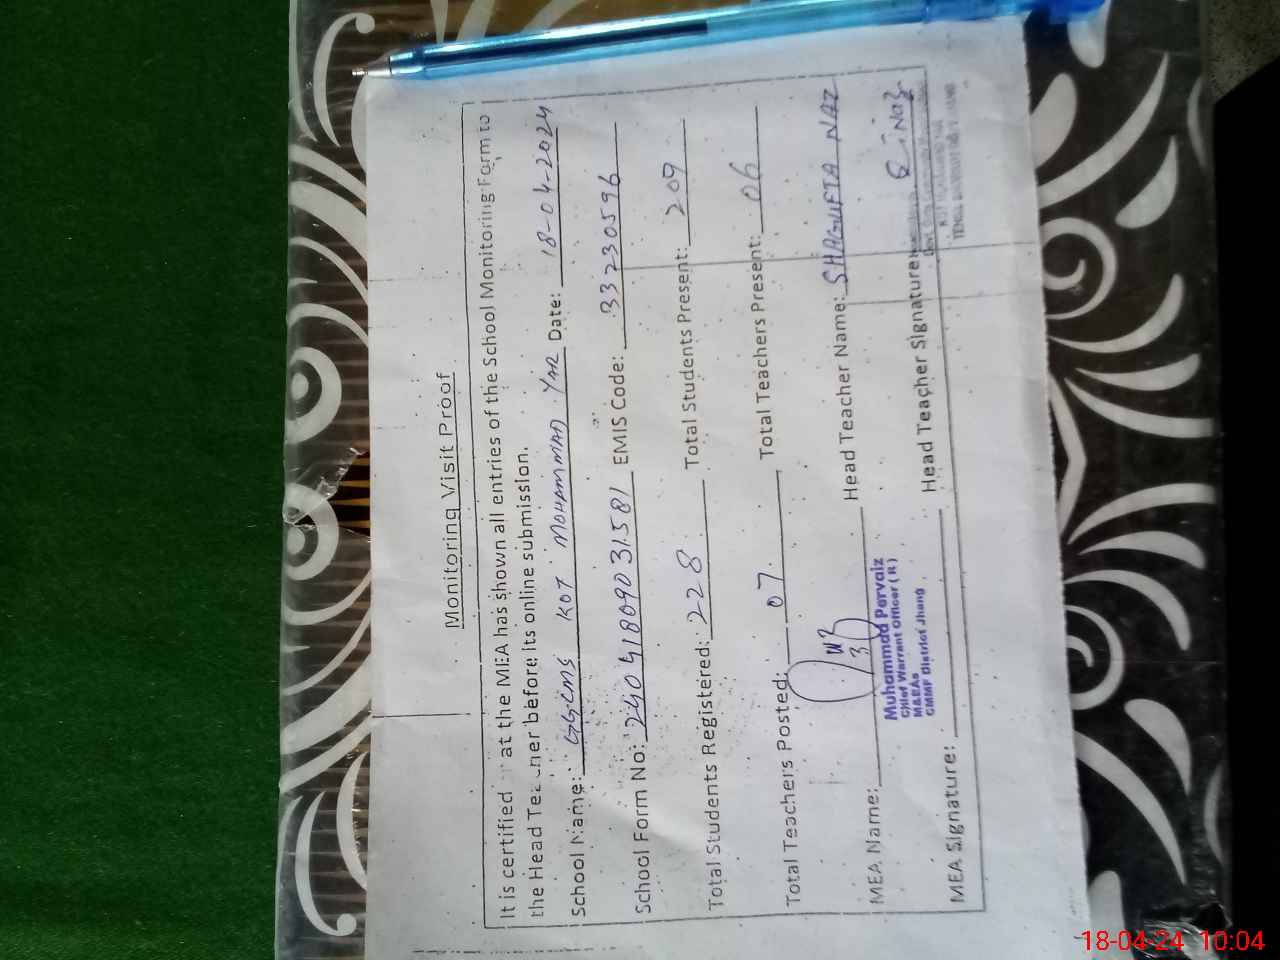 Monitoring Visit Proof
It is certified at the MEA has shown all entries of the School Monitoring Form to
the Head Teacher before its online submission.
School Name: GGCMS KOT MOHAMMAD YAR Date: 18-04-2024
School Form No: 24041809031581 EMIS Code: 33230596
Total Students Registered: 228 Total Students Present: 209
Total Teachers Posted: 07 Total Teachers Present: 06
MEA Name: Head Teacher Name: SHAGUFTA NAZ
Muhammad Pervaiz
Chief Warrant Officer (R)
M&EAs
CMMF District Jhang
MEA Signature: Head Teacher Signature:
18-04-24 10:04